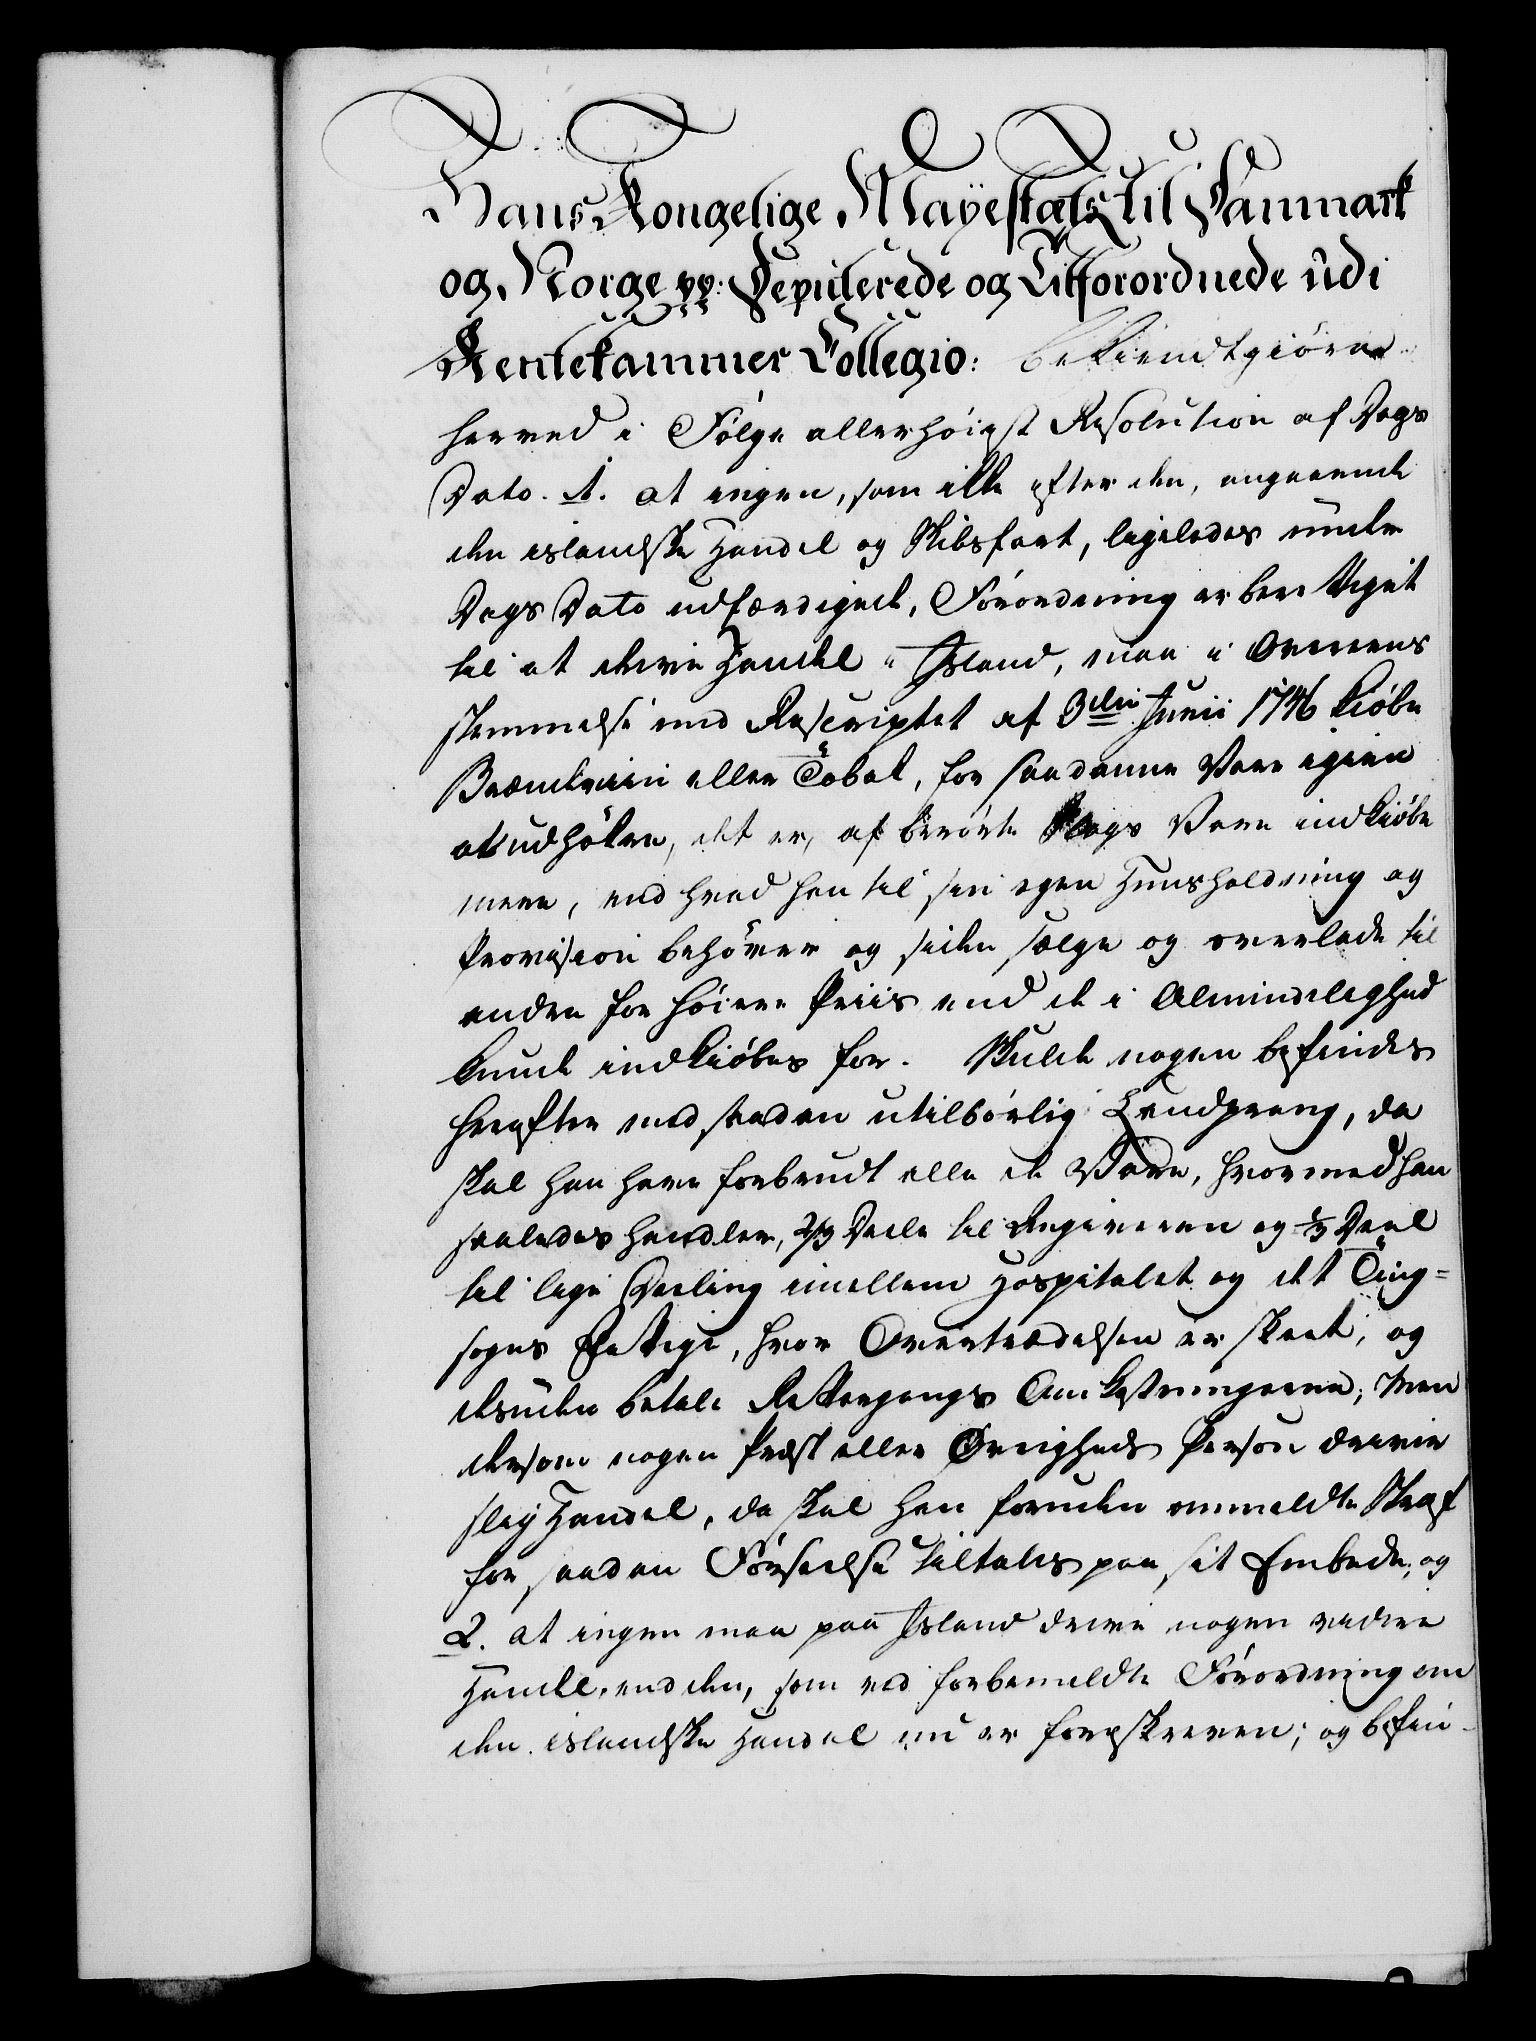 Hans Kongelige Mayestæts til Danmark
og Norge pp: Deputerede og Tilforordnede udi
Rentekammer Collegio: bekiendtgiöre
herved i Fölge allerhöiest Resolution af Dags
Dato. 1. at ingen, som ikke efter den, angaaende
den islandske Handel og Skibsfart, ligeledes under
Dags Dato udfærdigede, Forordning er berettiget
til at drive Handel i Island, maa i Overeens
stemmelse med Rescriptet af 3die Junii 1746 kiöbe
Brændeviin eller Tobak, for saadanne Vare igien
at udhökre, det er, af berörte Slags Vare indkiöbe
mere, end hvad han til sin egen Huusholdning og
Provision behöver og siden sælge og overlade til
andre for höiere Priis end de i Almindelighed
kunde indkiöbes for. Skulde nogen befindes
herefter med saadan utilbörlig Landprang, da
skal han have forbrudt alle de Vare, hvormed han
saaledes handler, 2/3 Deele til Angiveren og 1/3 Deel
til lige Deeling imellem Hospitalet og det Ting=
sogns Fattige, hvor Overtrædelsen er skeet, og
desuden betale Rettergangs Omkostningerne; Men
dersom nogen Præst eller Övrigheds Person driver
slig Handel, da skal han foruden ommeldte Straf
for saadan Forseelse tiltales paa sit Embede; og
2. at ingen maa paa Island drive nogen videre
Handel, end den, som ved forbemeldte Forordning om
den islandske Handel nu er foreskreven; og befin-